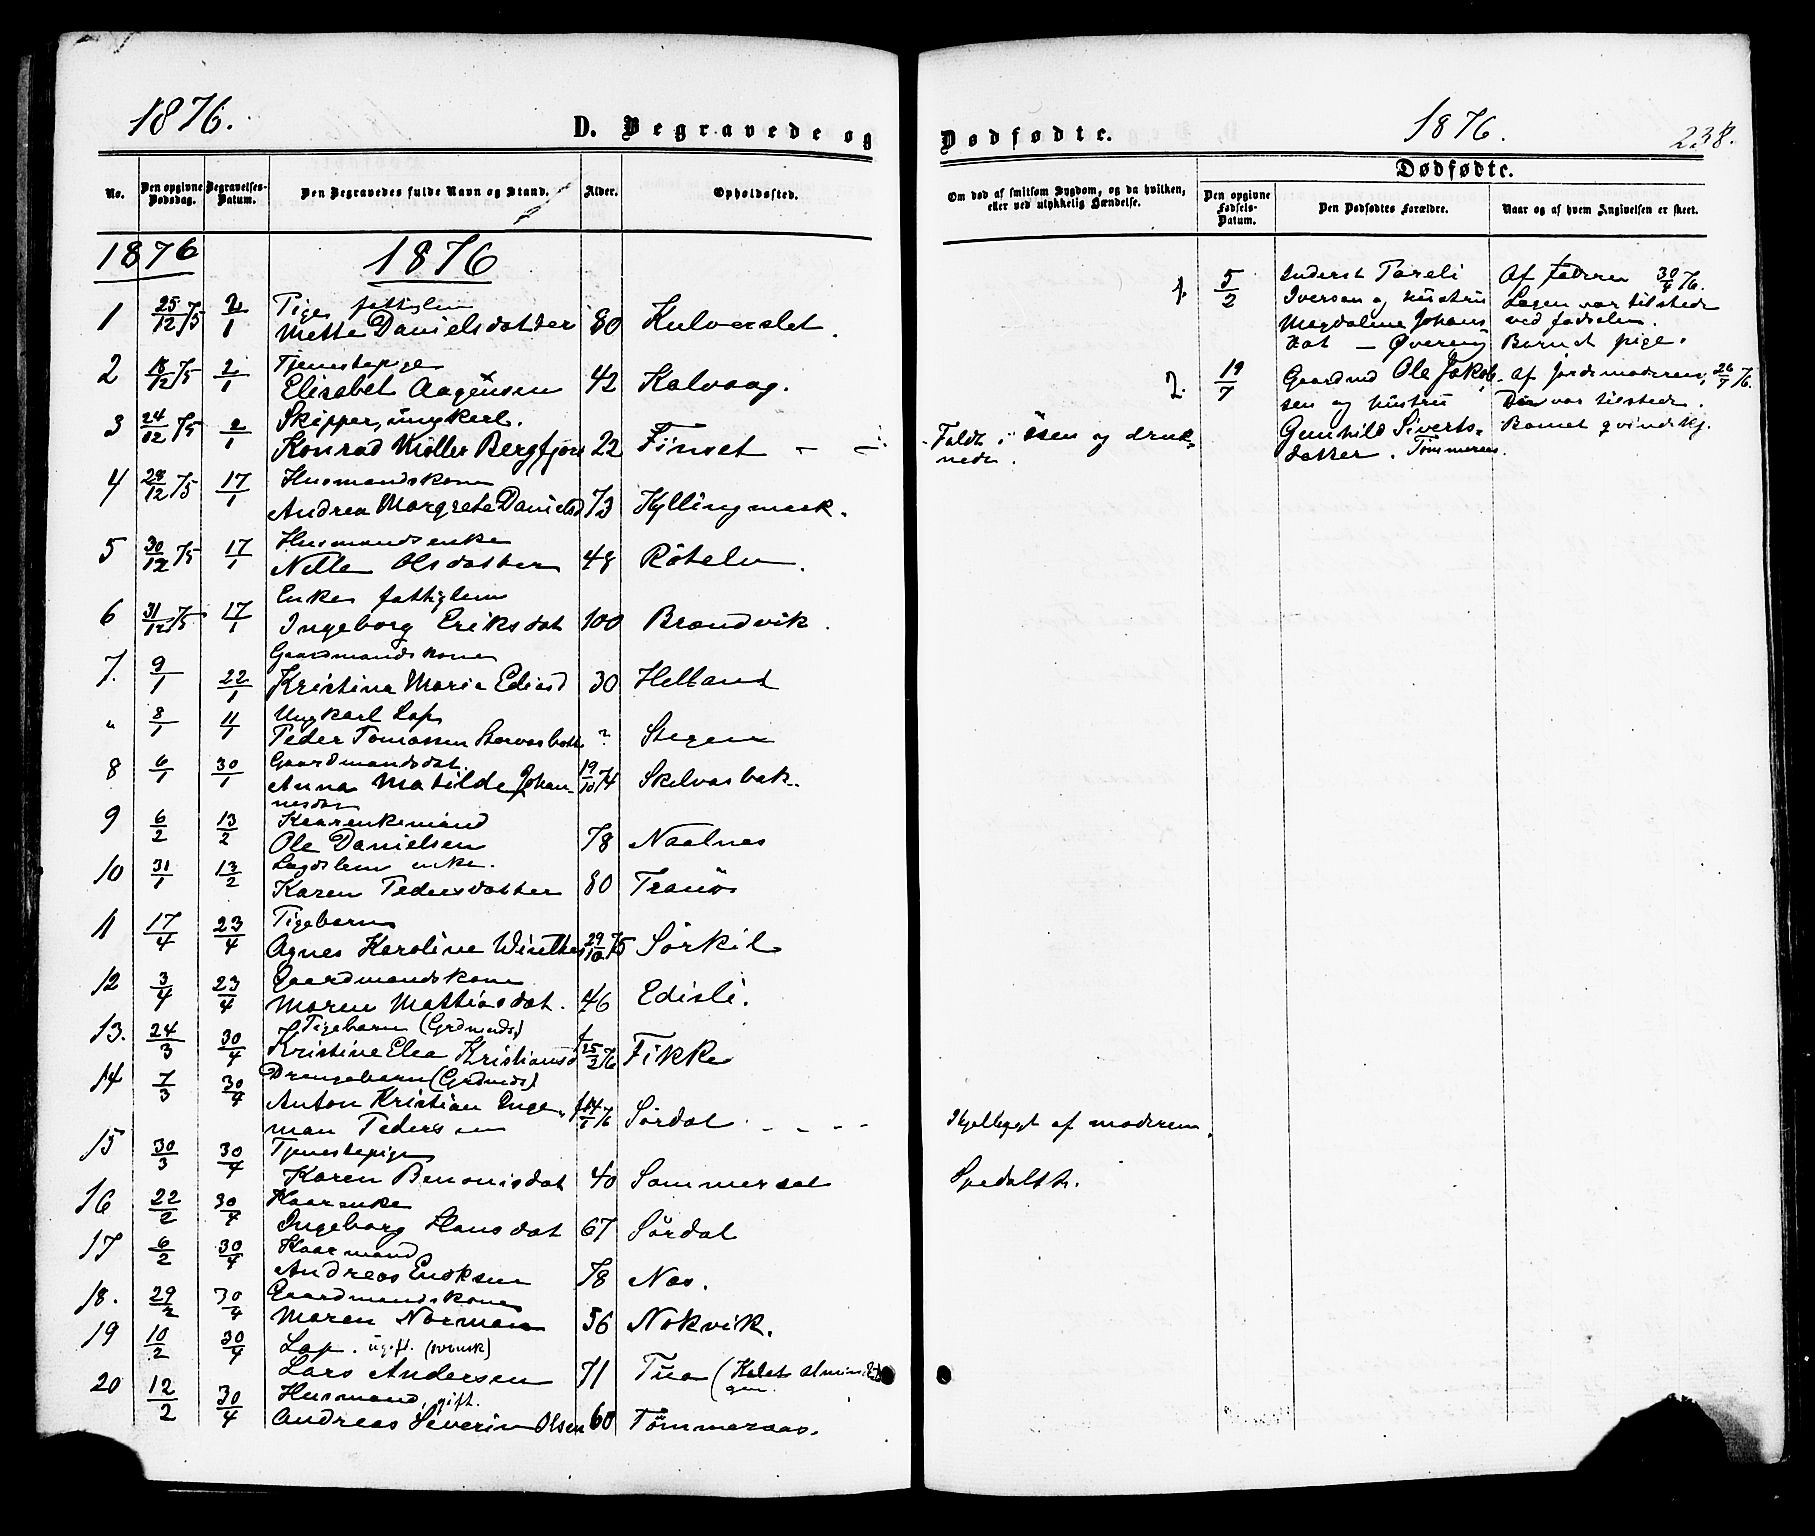 1876.
D. Begravede og
No.
Den opgivne Dødsdag.
Begravelses-Datum.
Den Begravedes fulde Navn og Stand.
Alder.
Opholdssted.
1876 1876
Pige, fattiglem
1 25/12 75 2/1 Mette Danielsdatter 80 Kulverslet.
Tjenestepige
2 18/12 75 2/1 Elisabet Aagensen 42 Kalvaag.
Skipper, ungkarl.
3 24/12 75 2/1 Konrad Möller Bergfjor 22 Finset
Husmandskone
4 29/12 75 17/1 Andrea Margrete Danielsd 73 Kyllingmark.
Husmandsenke
5 30/12 75 17/1 Nelle Olsdatter 48 Røtelv.
Enke, fattiglem
6 31/12 75 17/1 Ingeborg Eriksdat 100 Brandvik.
Gaardmandskone
7. 9/1 22/1 Kristina Maria Eliasd 30 Helland
Ungkarl Lap
" 8/1 11/1 Peder Tomassen ? Stegen
Gaardmandsdat.
8 6/1 30/1 Anna Matilde Johan- 19/10 74 Skelvasbak.
nesdat
Kaarenkemand
9 6/2 13/2 Ole Danielsen 78 Naalnes
Lægdslem enke.
10 31/1 13/2 Karen Pedersdatter 80 Tranös
Pigebarn
11 17/4 23/4 Agnes Karoline Winther 29/10 75 Sörkil
Gaardmandskone
12 3/4 23/4 Maren Mattiasdat. 46 Edisli.
Pigebarn (Grdmnds)
13. 24/3 30/4 Kristine Elea Kristiansd f 25/2 76 Fikke
Drengebarn (Grdmds)
14 7/3 30/4 Anton Kristian Inge- 76 Sördal
man Pedersen
Tjenestepige
15 30/3 30/4 Karen Benonisdat 40 Sommerset
Kaarenke
16 22/2 30/4 Ingeborg Hansdat 67 Sördal
Kaarmand
17 6/2 30/4 Andreas Enoksen 78 Nes.
Gaardmandskone
18. 29/2 30/4 Maren Norman 56 Nokvik.
Lap. ugift. (svensk)
19 10/2 30/4 Lars Andersen 71 Tua
Husmand, gift.
20 12/2 30/4 Andreas Severin Olsen 60 Tömmeraas.
Dødfødte.
1876.
238.
Om død af smitsom Sygdom, og da hvilken, eller ved ulykkelig Hændelse.
Dødfødte.
Den opgivne Fødsels-Datum.
Den Dødfødtes Forældre.
Naar og af hvem Angivelsen er skeet.
1. 5/2 Inderst Pareli Af faderen 30/4 76.
Iversen og hustru Lægen var tilstede
Magdalena Johans ved fødselen.
dat — Øvereng Barnet pige.
2. 19/7 Gaardmd Ole Jakob- Af jordemoderen, 26/7 76.
sen og hustru Der var tilstede.
Gunhild Siverts- Barnet qvindekj.
datter. Tømmeraas.
Faldt i søen og druk-
nede.
Ihjellagt af moderen.
Spedalsk.